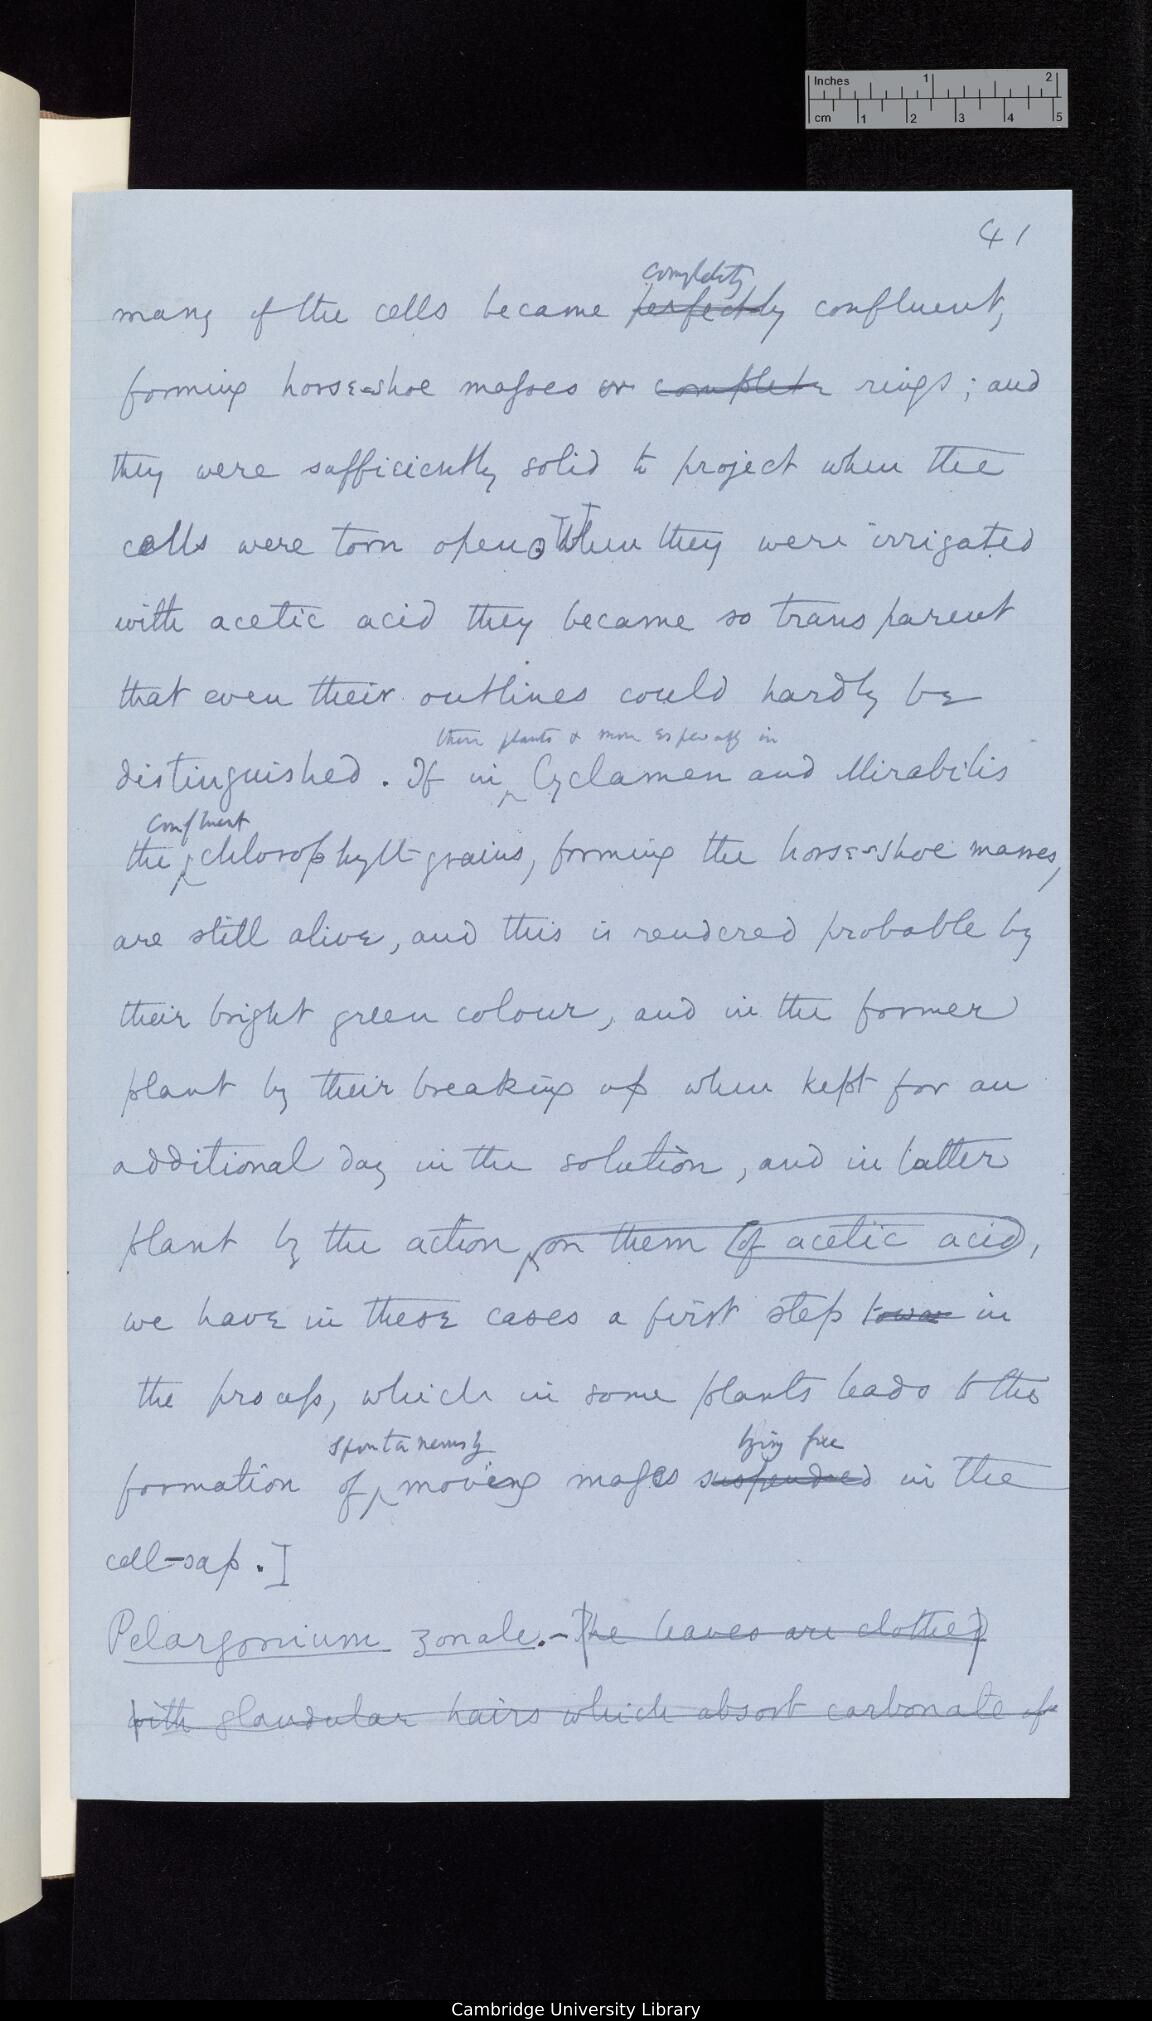 Inches 1 2
cm 1 2 3 4 5
41
completely
many of the cells became perfectly confluent,
forming horse-shoe masses or complete rings; and
they were sufficiently solid to project when the
cells were torn open. When they were irrigated
with acetic acid they became so transparent
that even their outlines could hardly be
these plants & more especially in
distinguished. If in Cyclamen and Mirabilis
confluent
the chlorophyll-grains, forming the horse-shoe masses,
are still alive, and this is rendered probable by
their bright green colour, and in the former
plant by their breaking up when kept for an
additional day in the solution, and in latter
plant by the action on them of acetic acid,
we have in these cases a first step towar in
the process, which in some plants leads to the
spontaneously lying free
formation of moving masses suspended in the
cell-sap.]
Pelargonium zonale.- The leaves are clothed
with glandular hairs which absorb carbonate of
Cambridge University Library